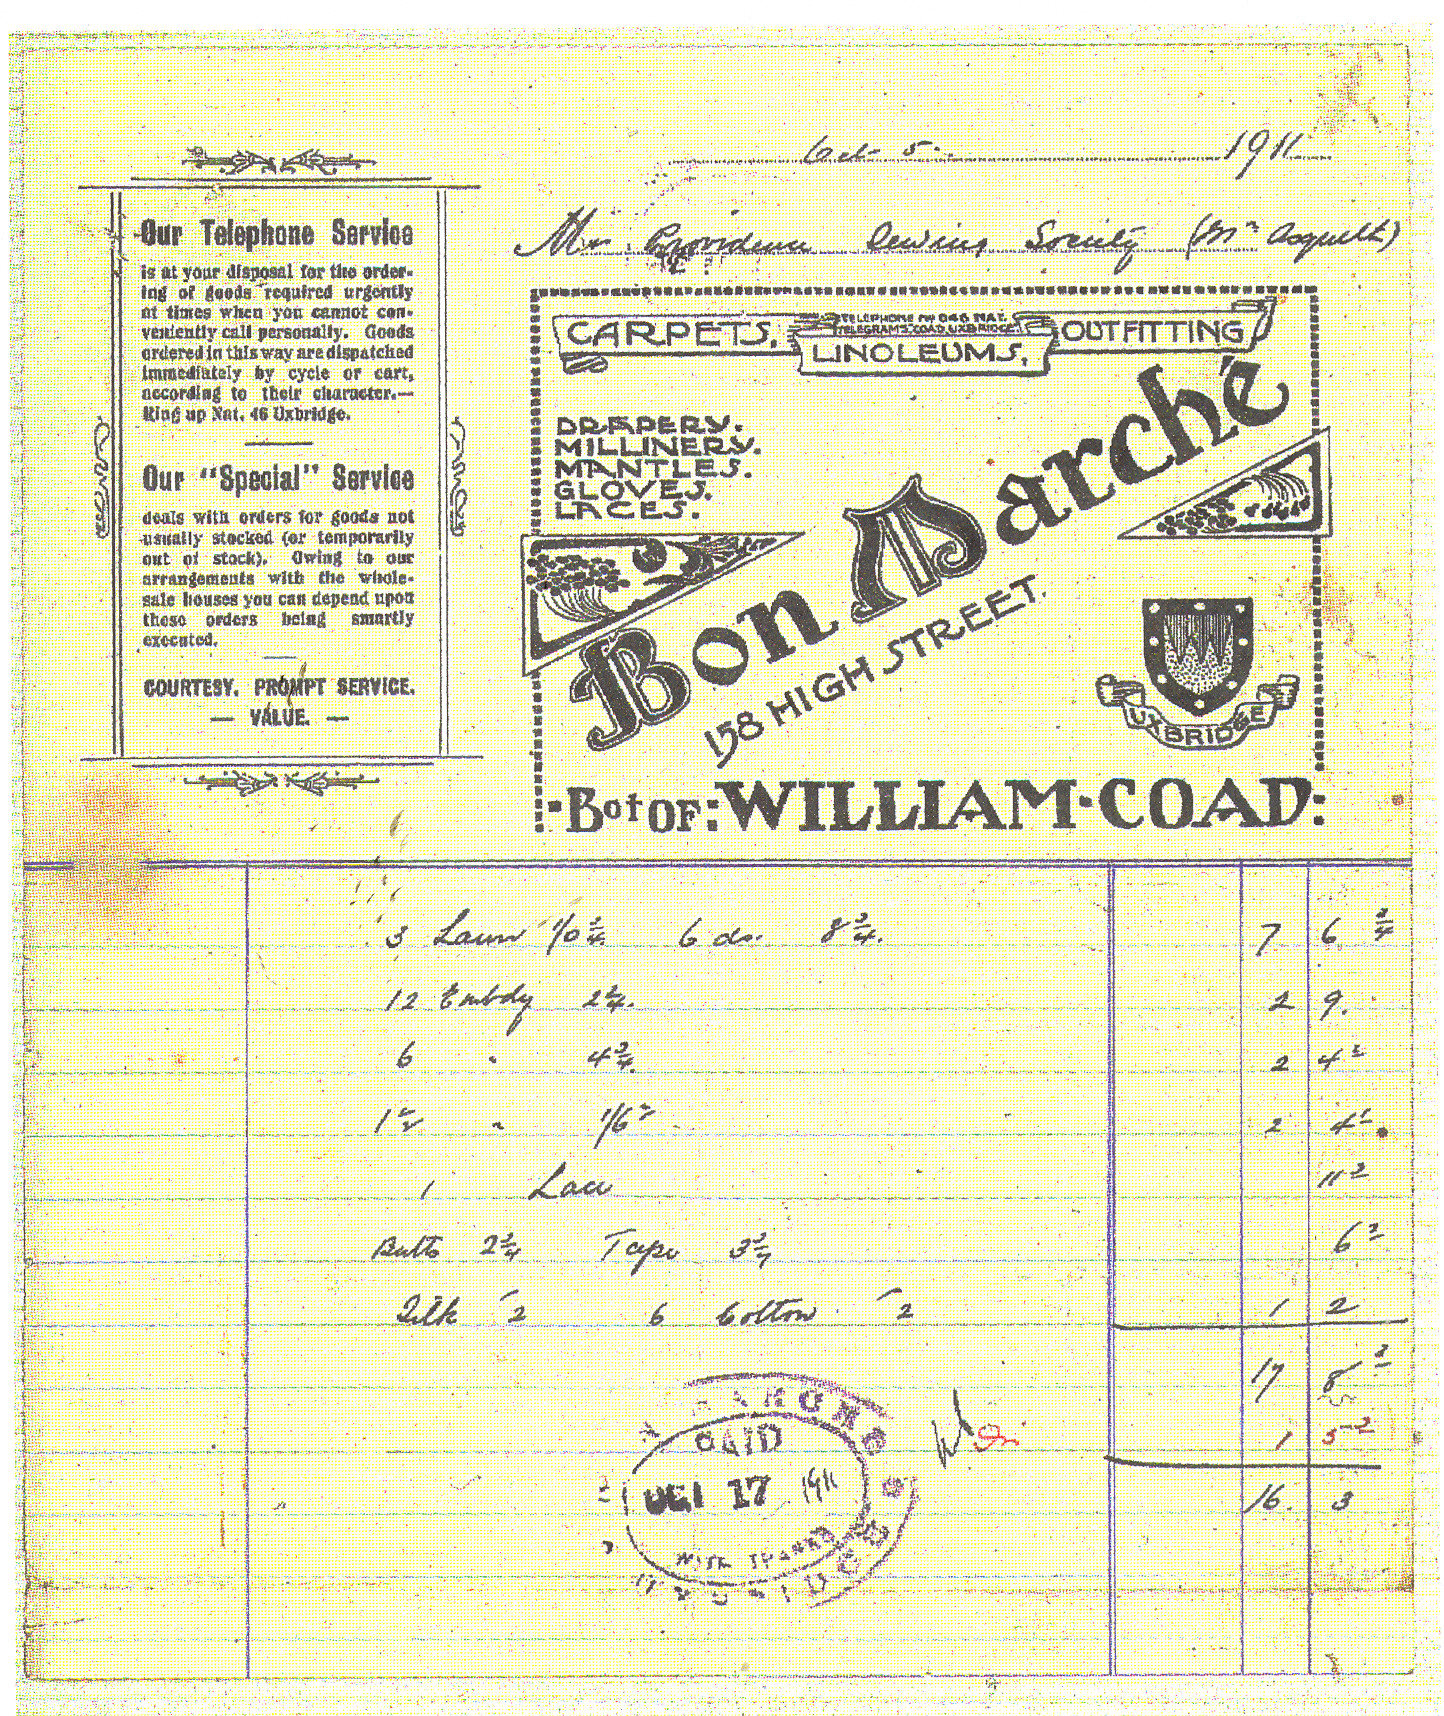 Oct 5 1911
Mrs Providence Sewing Society (Mrs Asquith)
Our Telephone Service
is at your disposal for the order-
ing of goods required urgently
at times when you cannot con-
veniently call personally. Goods
ordered in this way are dispatched
immediately by cycle or cart,
according to their character.—
Ring up Nat. 46 Uxbridge.
Our "Special" Service
deals with orders for goods not
usually stocked (or temporarily
out of stock). Owing to our
arrangements with the whole-
sale houses you can depend upon
these orders being smartly
executed.
COURTESY. PROMPT SERVICE.
— VALUE. —
CARPETS,
TELEPHONE Nº 046 NAT.
TELEGRAMS. COAD, UXBRIDGE.
LINOLEUMS,
OUTFITTING
DRAPERY.
MILLINERY.
MANTLES.
GLOVES.
LACES.
Bon Marché
158 HIGH STREET.
UXBRIDGE
Bot OF: WILLIAM·COAD:
3 Lawn 1/0¾ 6 do. 8¾. 7 6¾
12 Embdy 2¾. 2 9.
6 " 4¾. 2 4½
1½ " 1/6½ 2 4½
1 Lace 11½
Butts 2¾ Tape 3¾ 6½
Silk -2 6 Cotton -2 1 2
17 8½
1 5½
16. 3
PAID
OCT 17 1911
WITH THANKS